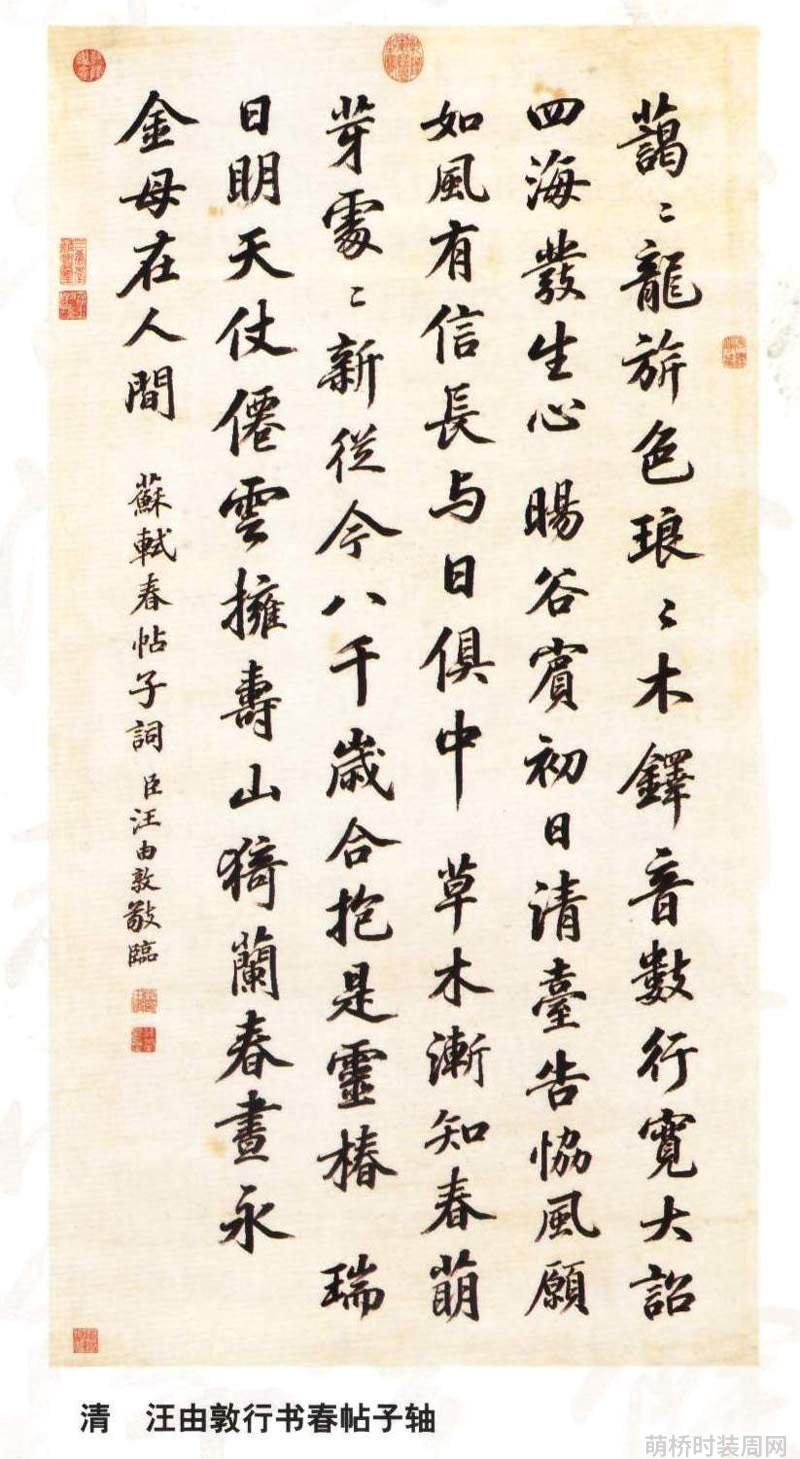 藹〻龍旂色琅〻木鐸音數行寬大詔
四海發生心 暘谷賓初日清臺告協風願
如風有信長与日俱中 草木漸知春萌
芽處〻新從今八千歲合抱是靈椿 瑞
日明天仗僊雲擁壽山猗蘭春晝永
金母在人間 蘇軾春帖子詞 臣汪由敦敬臨
清 汪由敦行书春帖子轴
萌桥时装周网